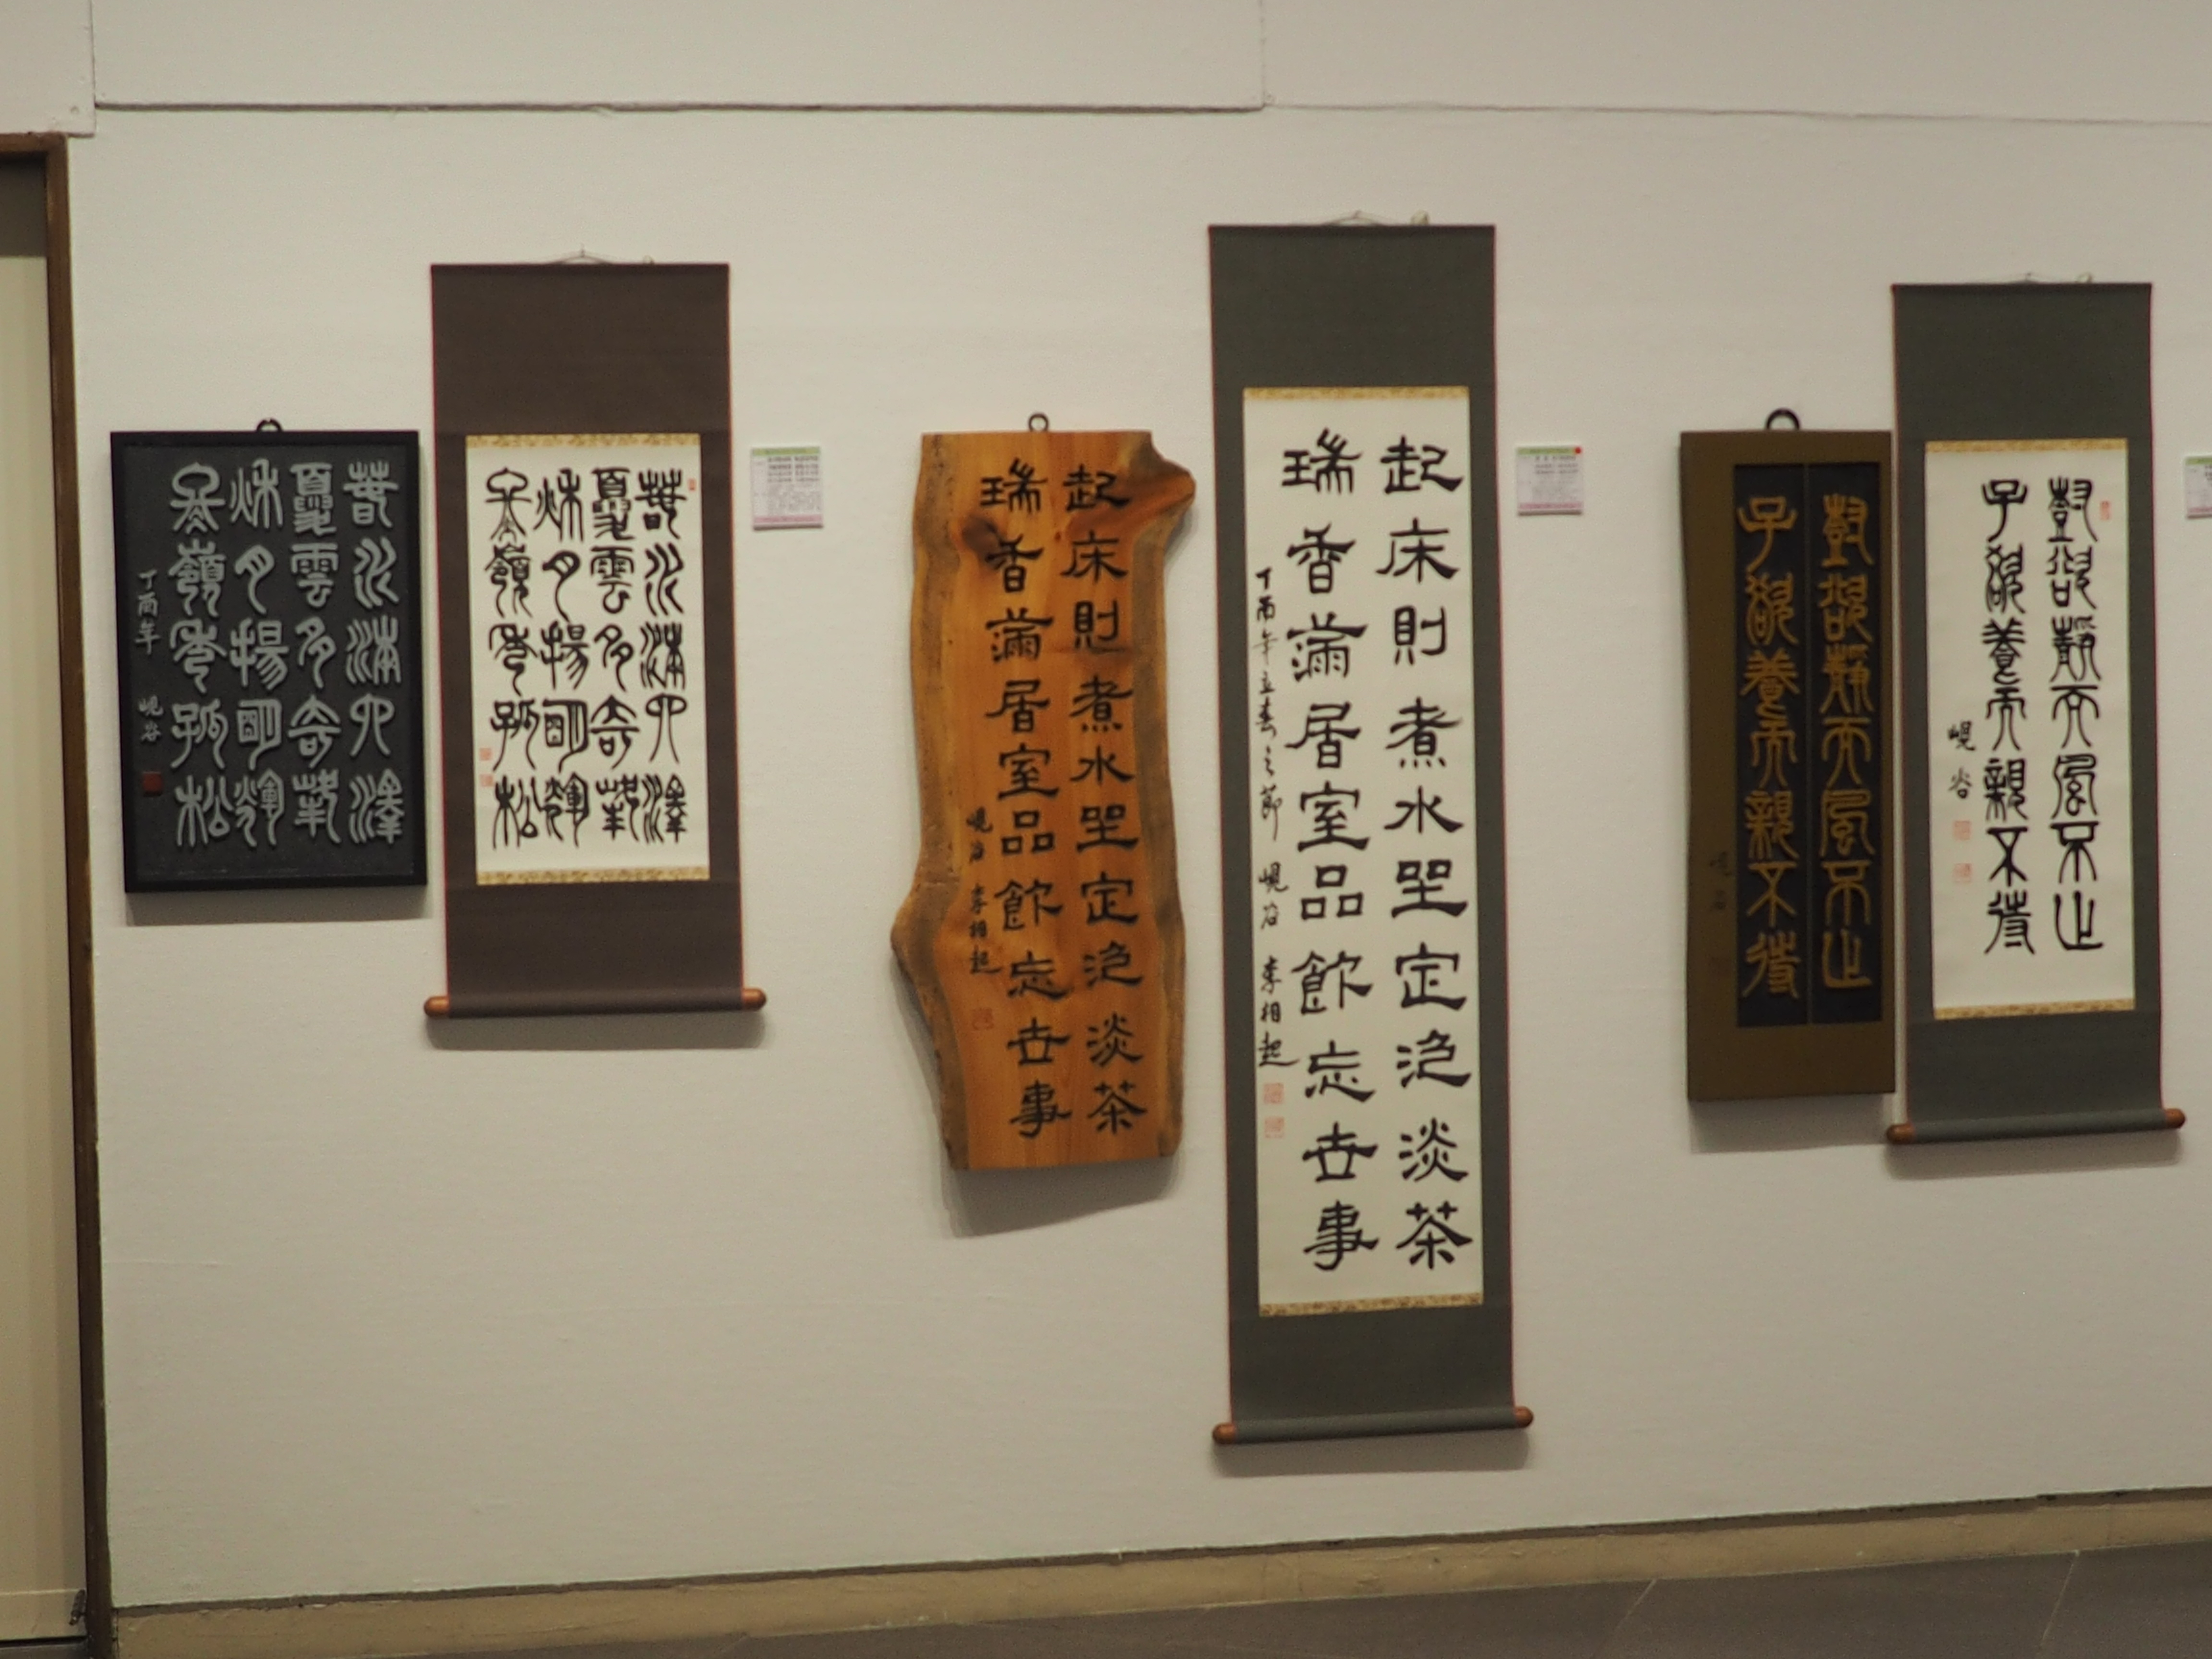 春水滿四澤
夏雲多奇峯
秋月揚明輝
冬嶺秀孤松
丁酉年 峴谷
春水滿四澤
夏雲多奇峯
秋月揚明輝
冬嶺秀孤松
起床則煮水坐定泡淡茶
瑞香滿居室品飲忘世事
峴谷 李相起
起床則煮水坐定泡淡茶
瑞香滿居室品飲忘世事
丁酉年立春之節 峴谷 李相起
樹欲靜而風不止
子欲養而親不待
峴谷
樹欲靜而風不止
子欲養而親不待
峴谷